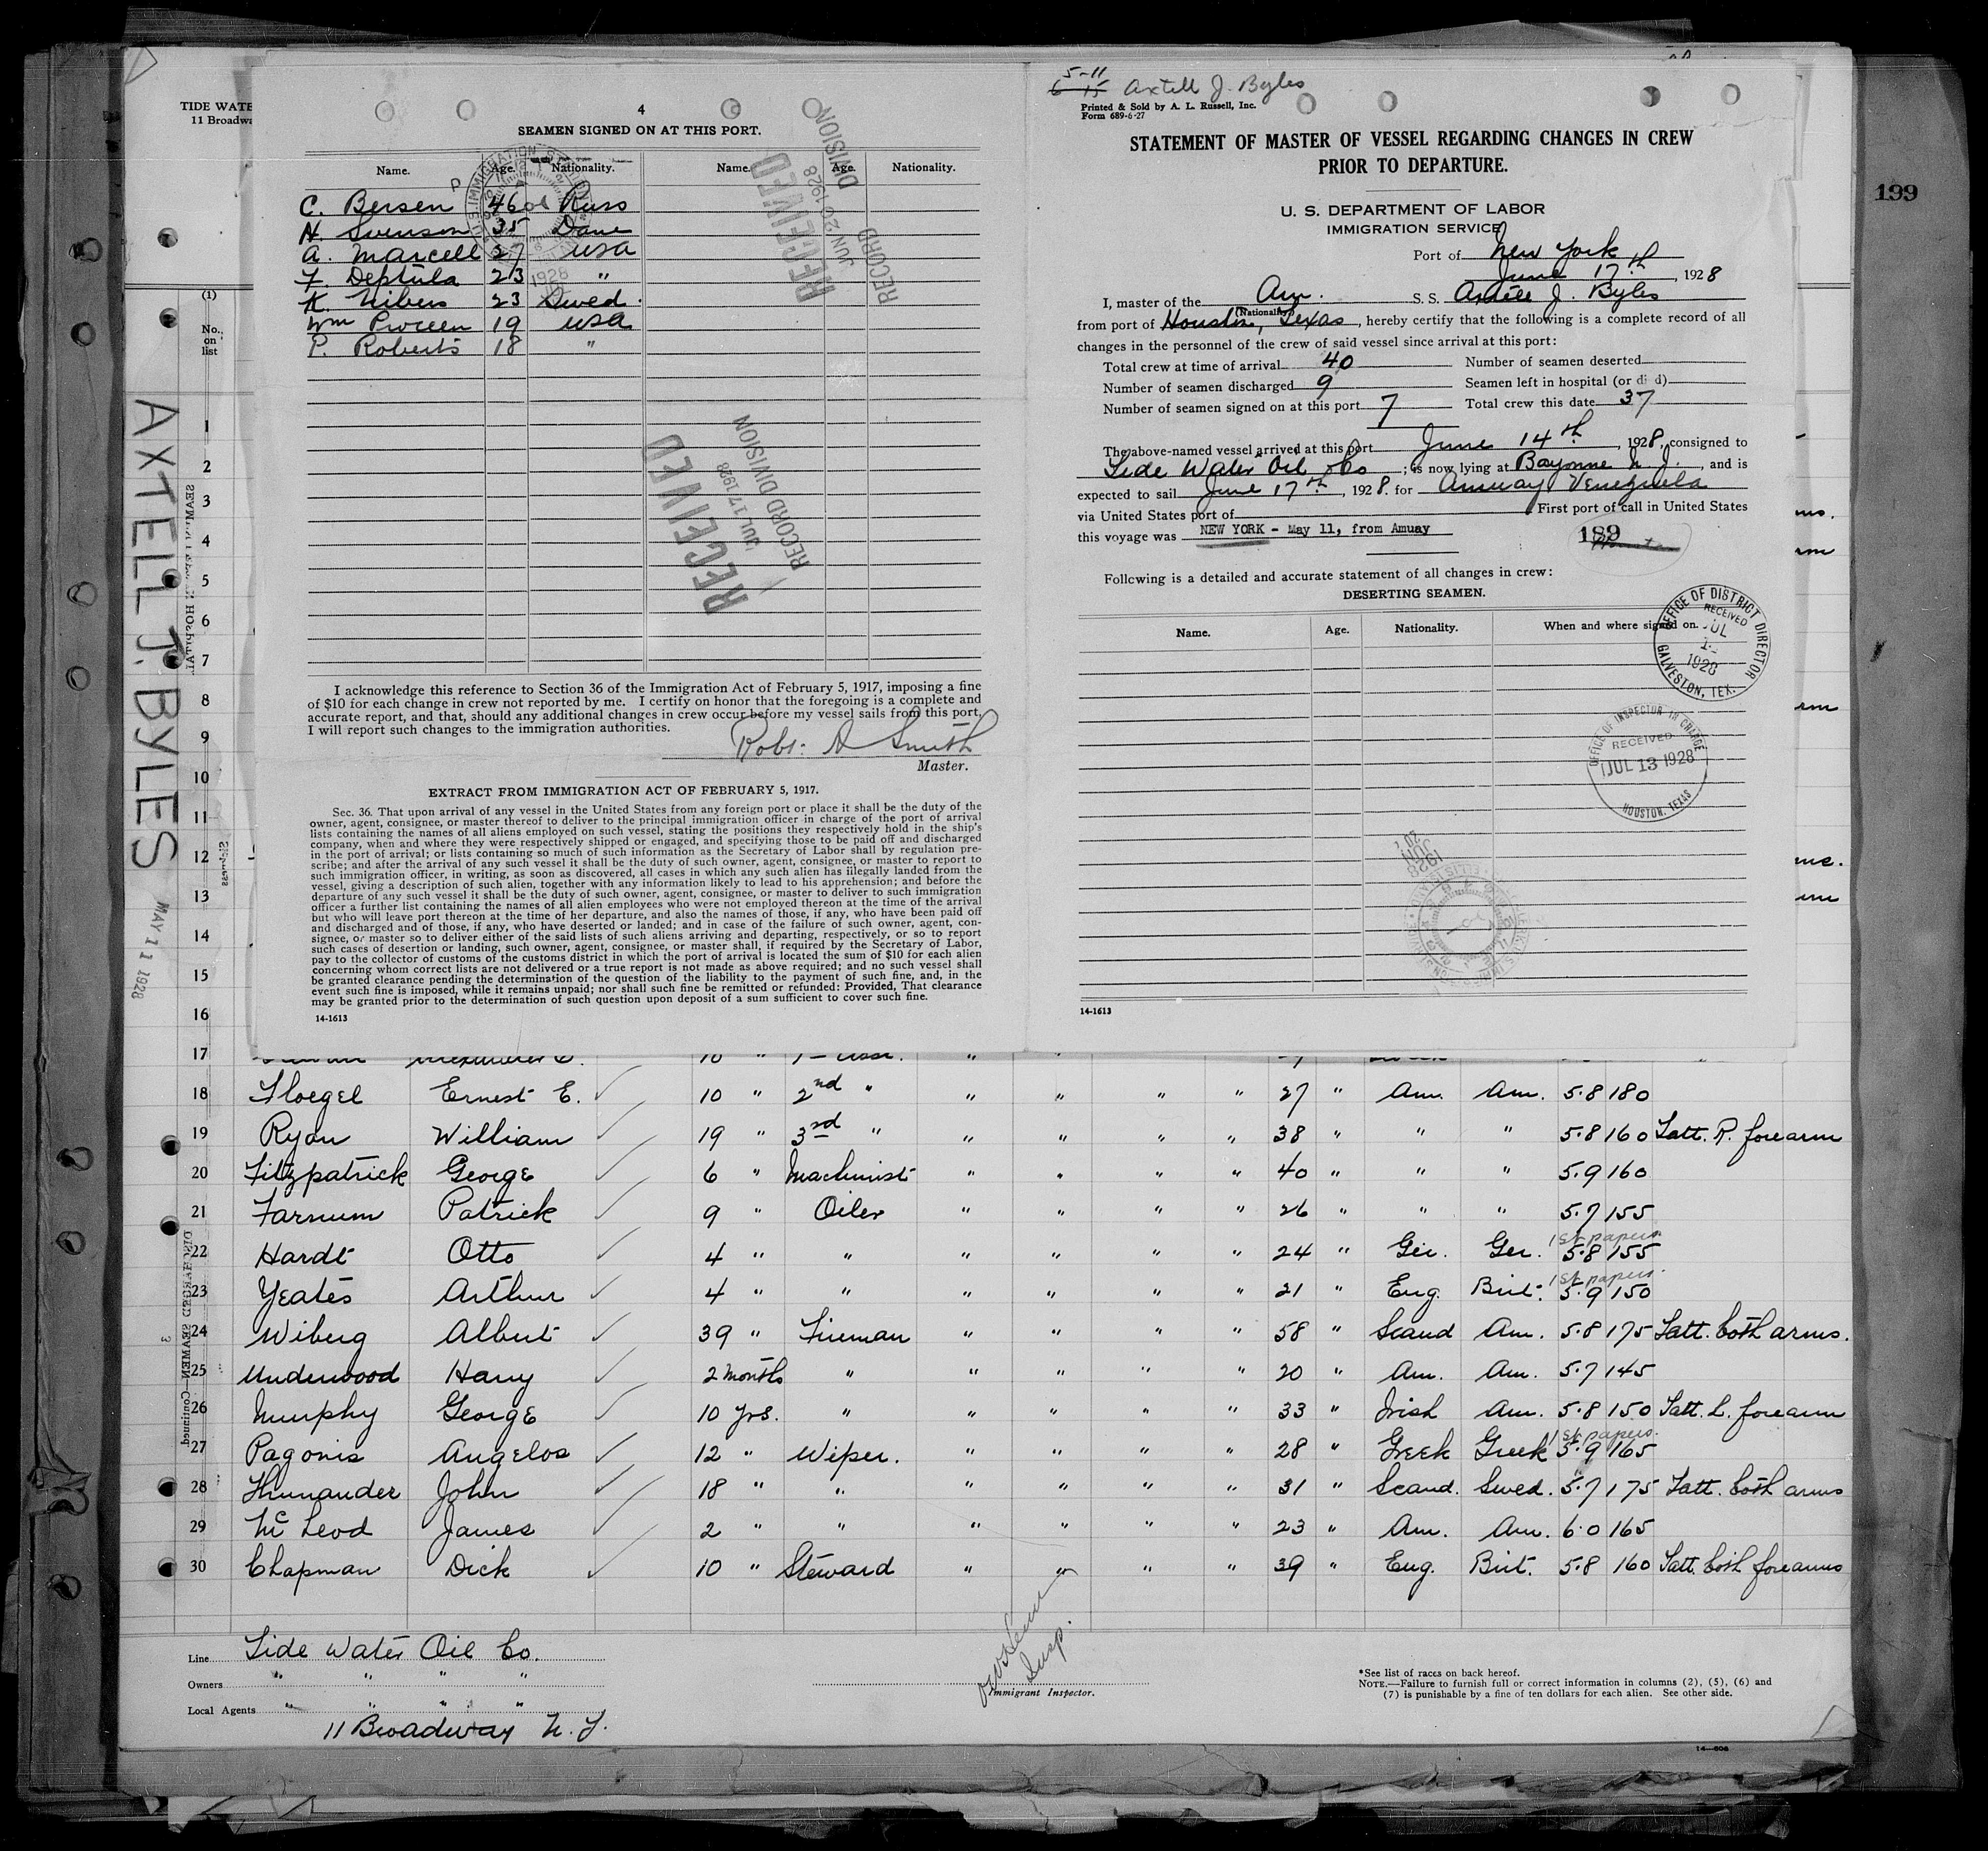 199
TIDE WATE
11 Broadwa
AXTELL J. BYLES
MAY 11 1928
4
SEAMEN SIGNED ON AT THIS PORT.
Name. Age. Nationality. Name. Age. Nationality.
C. Bersen 46 Russ
N. Svenson 35 Dane
A. Marcell 27 USA
F. Deptula 23 "
K. Nibers 23 Swed.
Wm Proceen 19 USA
P. Roberts 18 "
RECEIVED
JUN 26 1928
RECORD DIVISION
RECEIVED
JUL 17 1928
RECORD DIVISION
I acknowledge this reference to Section 36 of the Immigration Act of February 5, 1917, imposing a fine
of $10 for each change in crew not reported by me. I certify on honor that the foregoing is a complete and
accurate report, and that, should any additional changes in crew occur before my vessel sails from this port,
I will report such changes to the immigration authorities.
Robt. A Smith
Master.
EXTRACT FROM IMMIGRATION ACT OF FEBRUARY 5, 1917.
Sec. 36. That upon arrival of any vessel in the United States from any foreign port or place it shall be the duty of the
owner, agent, consignee, or master thereof to deliver to the principal immigration officer in charge of the port of arrival
lists containing the names of all aliens employed on such vessel, stating the positions they respectively hold in the ship's
company, when and where they were respectively shipped or engaged, and specifying those to be paid off and discharged
in the port of arrival; or lists containing so much of such information as the Secretary of Labor shall by regulation pre-
scribe; and after the arrival of any such vessel it shall be the duty of such owner, agent, consignee, or master to report to
such immigration officer, in writing, as soon as discovered, all cases in which any such alien has illegally landed from the
vessel, giving a description of such alien, together with any information likely to lead to his apprehension; and before the
departure of any such vessel it shall be the duty of such owner, agent, consignee, or master to deliver to such immigration
officer a further list containing the names of all alien employees who were not employed thereon at the time of the arrival
but who will leave port thereon at the time of her departure, and also the names of those, if any, who have been paid off
and discharged and of those, if any, who have deserted or landed; and in case of the failure of such owner, agent, con-
signee, or master so to deliver either of the said lists of such aliens arriving and departing, respectively, or so to report
such cases of desertion or landing, such owner, agent, consignee, or master shall, if required by the Secretary of Labor,
pay to the collector of customs of the customs district in which the port of arrival is located the sum of $10 for each alien
concerning whom correct lists are not delivered or a true report is not made as above required; and no such vessel shall
be granted clearance pending the determination of the question of the liability to the payment of such fine, and, in the
event such fine is imposed, while it remains unpaid; nor shall such fine be remitted or refunded: Provided, That clearance
may be granted prior to the determination of such question upon deposit of a sum sufficient to cover such fine.
14-1613
5-11
6 15 Axtell J. Byles
Printed & Sold by A. L. Russell, Inc.
Form 689-6-27
STATEMENT OF MASTER OF VESSEL REGARDING CHANGES IN CREW
PRIOR TO DEPARTURE.
U. S. DEPARTMENT OF LABOR
IMMIGRATION SERVICE
Port of New York
June 17th, 1928
I, master of the Am. S. S. Axtell J. Byles
(Nationality)
from port of Houston, Texas, hereby certify that the following is a complete record of all
changes in the personnel of the crew of said vessel since arrival at this port:
Total crew at time of arrival 40 Number of seamen deserted
Number of seamen discharged 9 Seamen left in hospital (or died)
Number of seamen signed on at this port 7 Total crew this date 37
The above-named vessel arrived at this port June 14th, 1928, consigned to
Tide Water Oil Co; is now lying at Bayonne N. J., and is
expected to sail June 17th, 1928. for Amuay Venezuela
via United States port of First port of call in United States
this voyage was NEW YORK - May 11, from Amuay
189
Following is a detailed and accurate statement of all changes in crew:
DESERTING SEAMEN.
Name. Age. Nationality. When and where signed on.
OFFICE OF DISTRICT DIRECTOR
RECEIVED
JUL
1928
GALVESTON, TEX.
OFFICE OF INSPECTOR IN CHARGE
RECEIVED
JUL 13 1928
HOUSTON, TEXAS
14-1613
(1)
No. on list
1
2
3
4
5
6
7
8
9
10
11
12
13
14
15
16
17
18 Floegel Ernest E. 10 " 2nd " " " " " 27 " Am. Am. 5.8 180
19 Ryan William 19 " 3rd " " " " " 38 " " " 5.8 160 Tatt. R. forearm
20 Fitzpatrick George 6 " Machinist " " " " 40 " " " 5.9 160
21 Farnum Patrick 9 " Oiler " " " " 26 " " " 5.7 155
22 Hardt Otto 4 " " " " " " 24 " Ger. Ger. 1st papers 5.8 155
23 Yeates Arthur 4 " " " " " " 21 " Eng. Brit. 1st papers. 5.9 150
24 Wiberg Albert 39 " Fireman " " " " 58 " Scand Am. 5.8 175 Tatt. both arms.
25 Underwood Harry 2 months " " " " " 20 " Am. Am. 5.7 145
26 Murphy George 10 yrs. " " " " " 33 " Irish Am. 5.8 150 Tatt. L. forearm
27 Pagonis Angelos 12 " Wiper. " " " " 28 " Greek Greek 1st papers. 5.9 165
28 Thunander John 18 " " " " " " 31 " Scand. Swed. 5.7 175 Tatt. both arms
29 McLeod James 2 " " " " " " 23 " Am. Am. 6.0 165
30 Chapman Dick 10 " Steward " " " " 39 " Eng. Brit. 5.8 160 Tatt. both forearms
Line Tide Water Oil Co.
Owners " " " "
Local Agents " " " "
11 Broadway N. Y.
Insp.
Immigrant Inspector.
*See list of races on back hereof.
NOTE.—Failure to furnish full or correct information in columns (2), (5), (6) and
(7) is punishable by a fine of ten dollars for each alien. See other side.
14-606